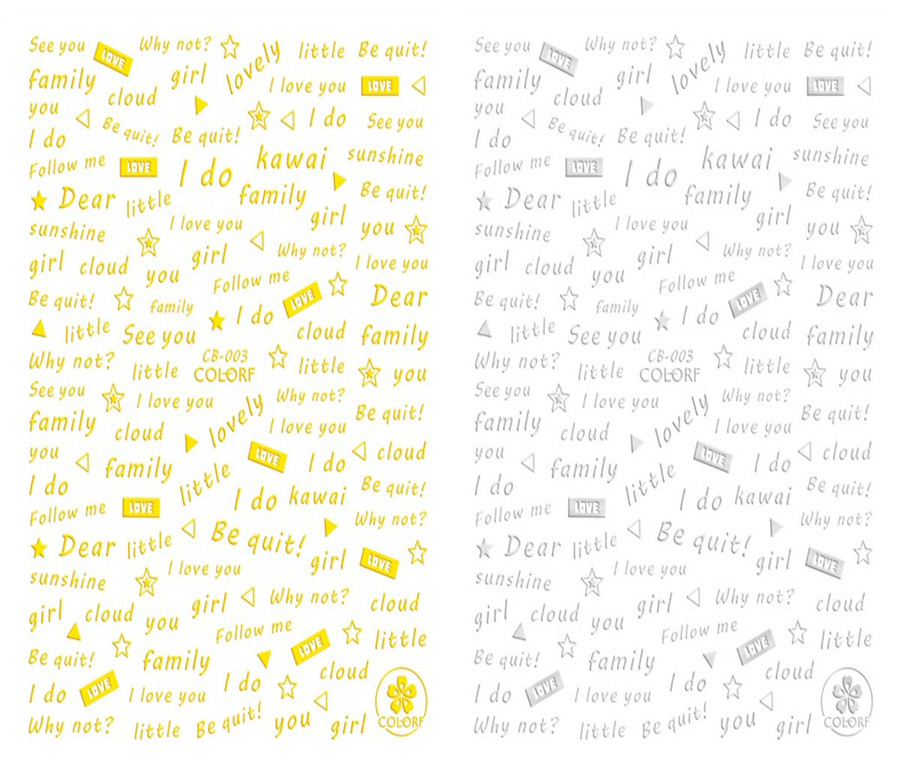 See you LOVE Why not? lovely little Be quit!
family girl I love you LOVE
you cloud
I do Be quit! Be quit! I do See you
Follow me LOVE I do kawai sunshine
Dear little family Be quit!
sunshine I love you girl you
girl cloud you girl Why not? I love you
Follow me
Be quit! family I do LOVE Dear
little See you cloud family
Why not? little CB-003 little you
COLORF
See you I love you lovely Why not?
family cloud I love you Be quit!
you family LOVE I do cloud
I do little I do kawai Be quit!
Follow me LOVE Why not?
Dear little Be quit! girl LOVE
sunshine I love you
girl cloud you girl Why not? cloud
Follow me
Be quit! family LOVE little
I do LOVE I love you I do cloud
Why not? little Be quit! you girl COLORF
See you LOVE Why not? lovely little Be quit!
family girl I love you LOVE
you cloud
I do Be quit! Be quit! I do See you
Follow me LOVE I do kawai sunshine
Dear little family Be quit!
sunshine I love you girl you
girl cloud you girl Why not? I love you
Follow me
Be quit! family I do LOVE Dear
little See you cloud family
Why not? little CB-003 little you
COLORF
See you I love you lovely Why not?
family cloud I love you Be quit!
you family LOVE I do cloud
I do little I do kawai Be quit!
Follow me LOVE Why not?
Dear little Be quit! girl LOVE
sunshine I love you
girl cloud you girl Why not? cloud
Follow me
Be quit! family LOVE little
I do LOVE I love you I do cloud
Why not? little Be quit! you girl COLORF